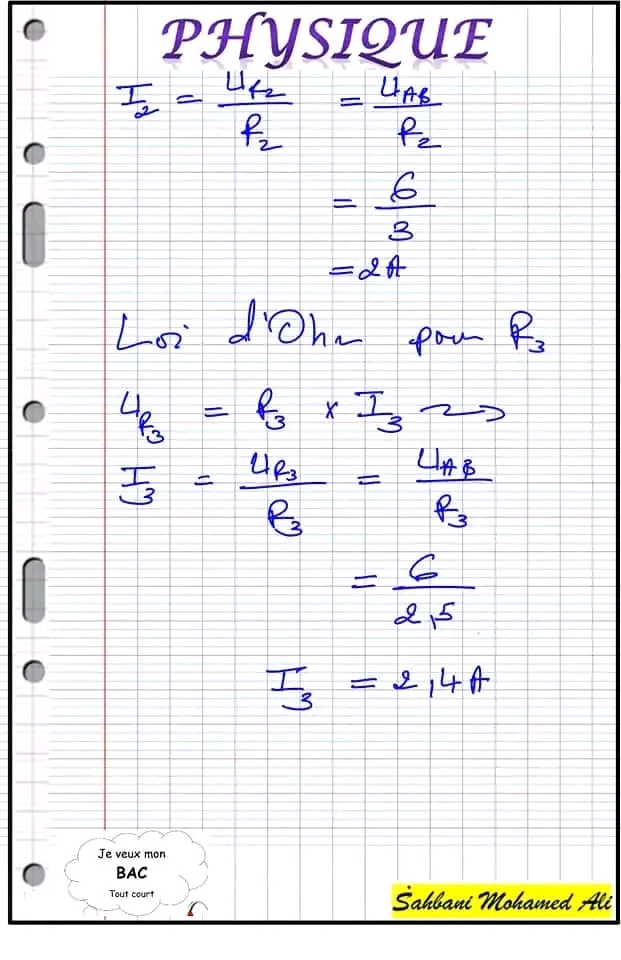 PHYSIQUE
I₂ = U_R₂ / R₂ = U_AB / R₂
= 6 / 3
= 2A
Loi d'Ohm pour R₃
U_R₃ = R₃ × I₃ ⟿
I₃ = U_R₃ / R₃ = U_AB / R₃
= 6 / 2,5
I₃ = 2,4A
Je veux mon
BAC
Tout court
Sahbani Mohamed Ali